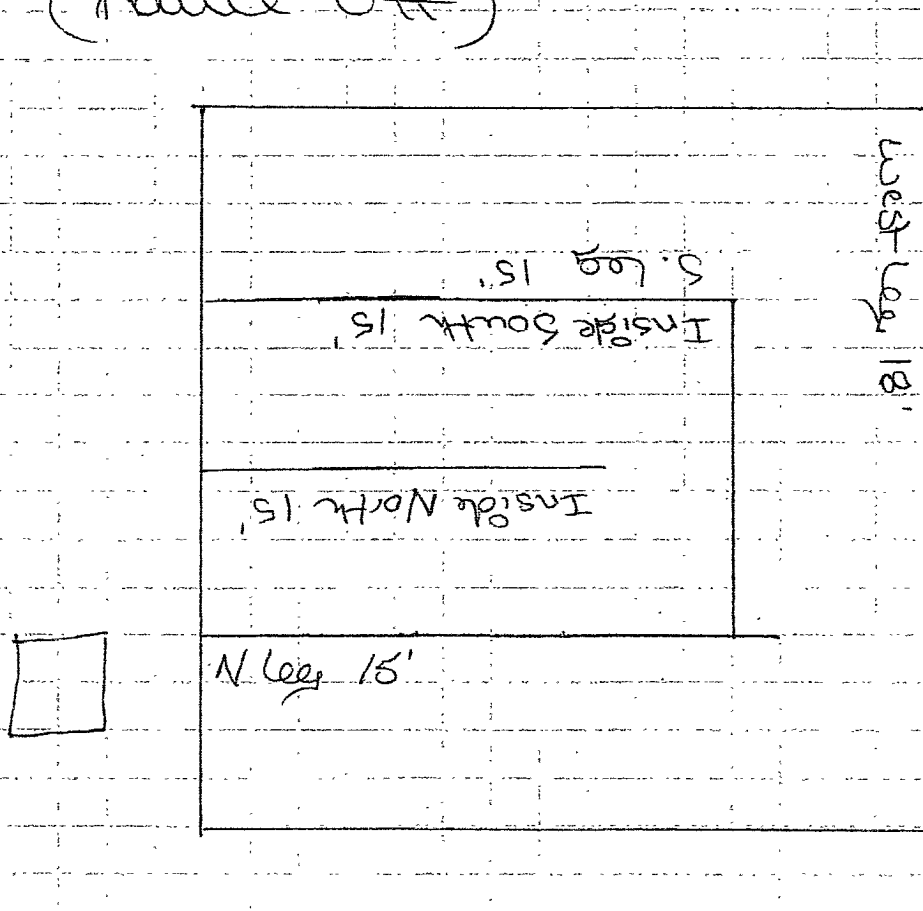 West Leg 18'
S. Leg 15'
Inside South 15'
Inside North 15'
N Leg 15'